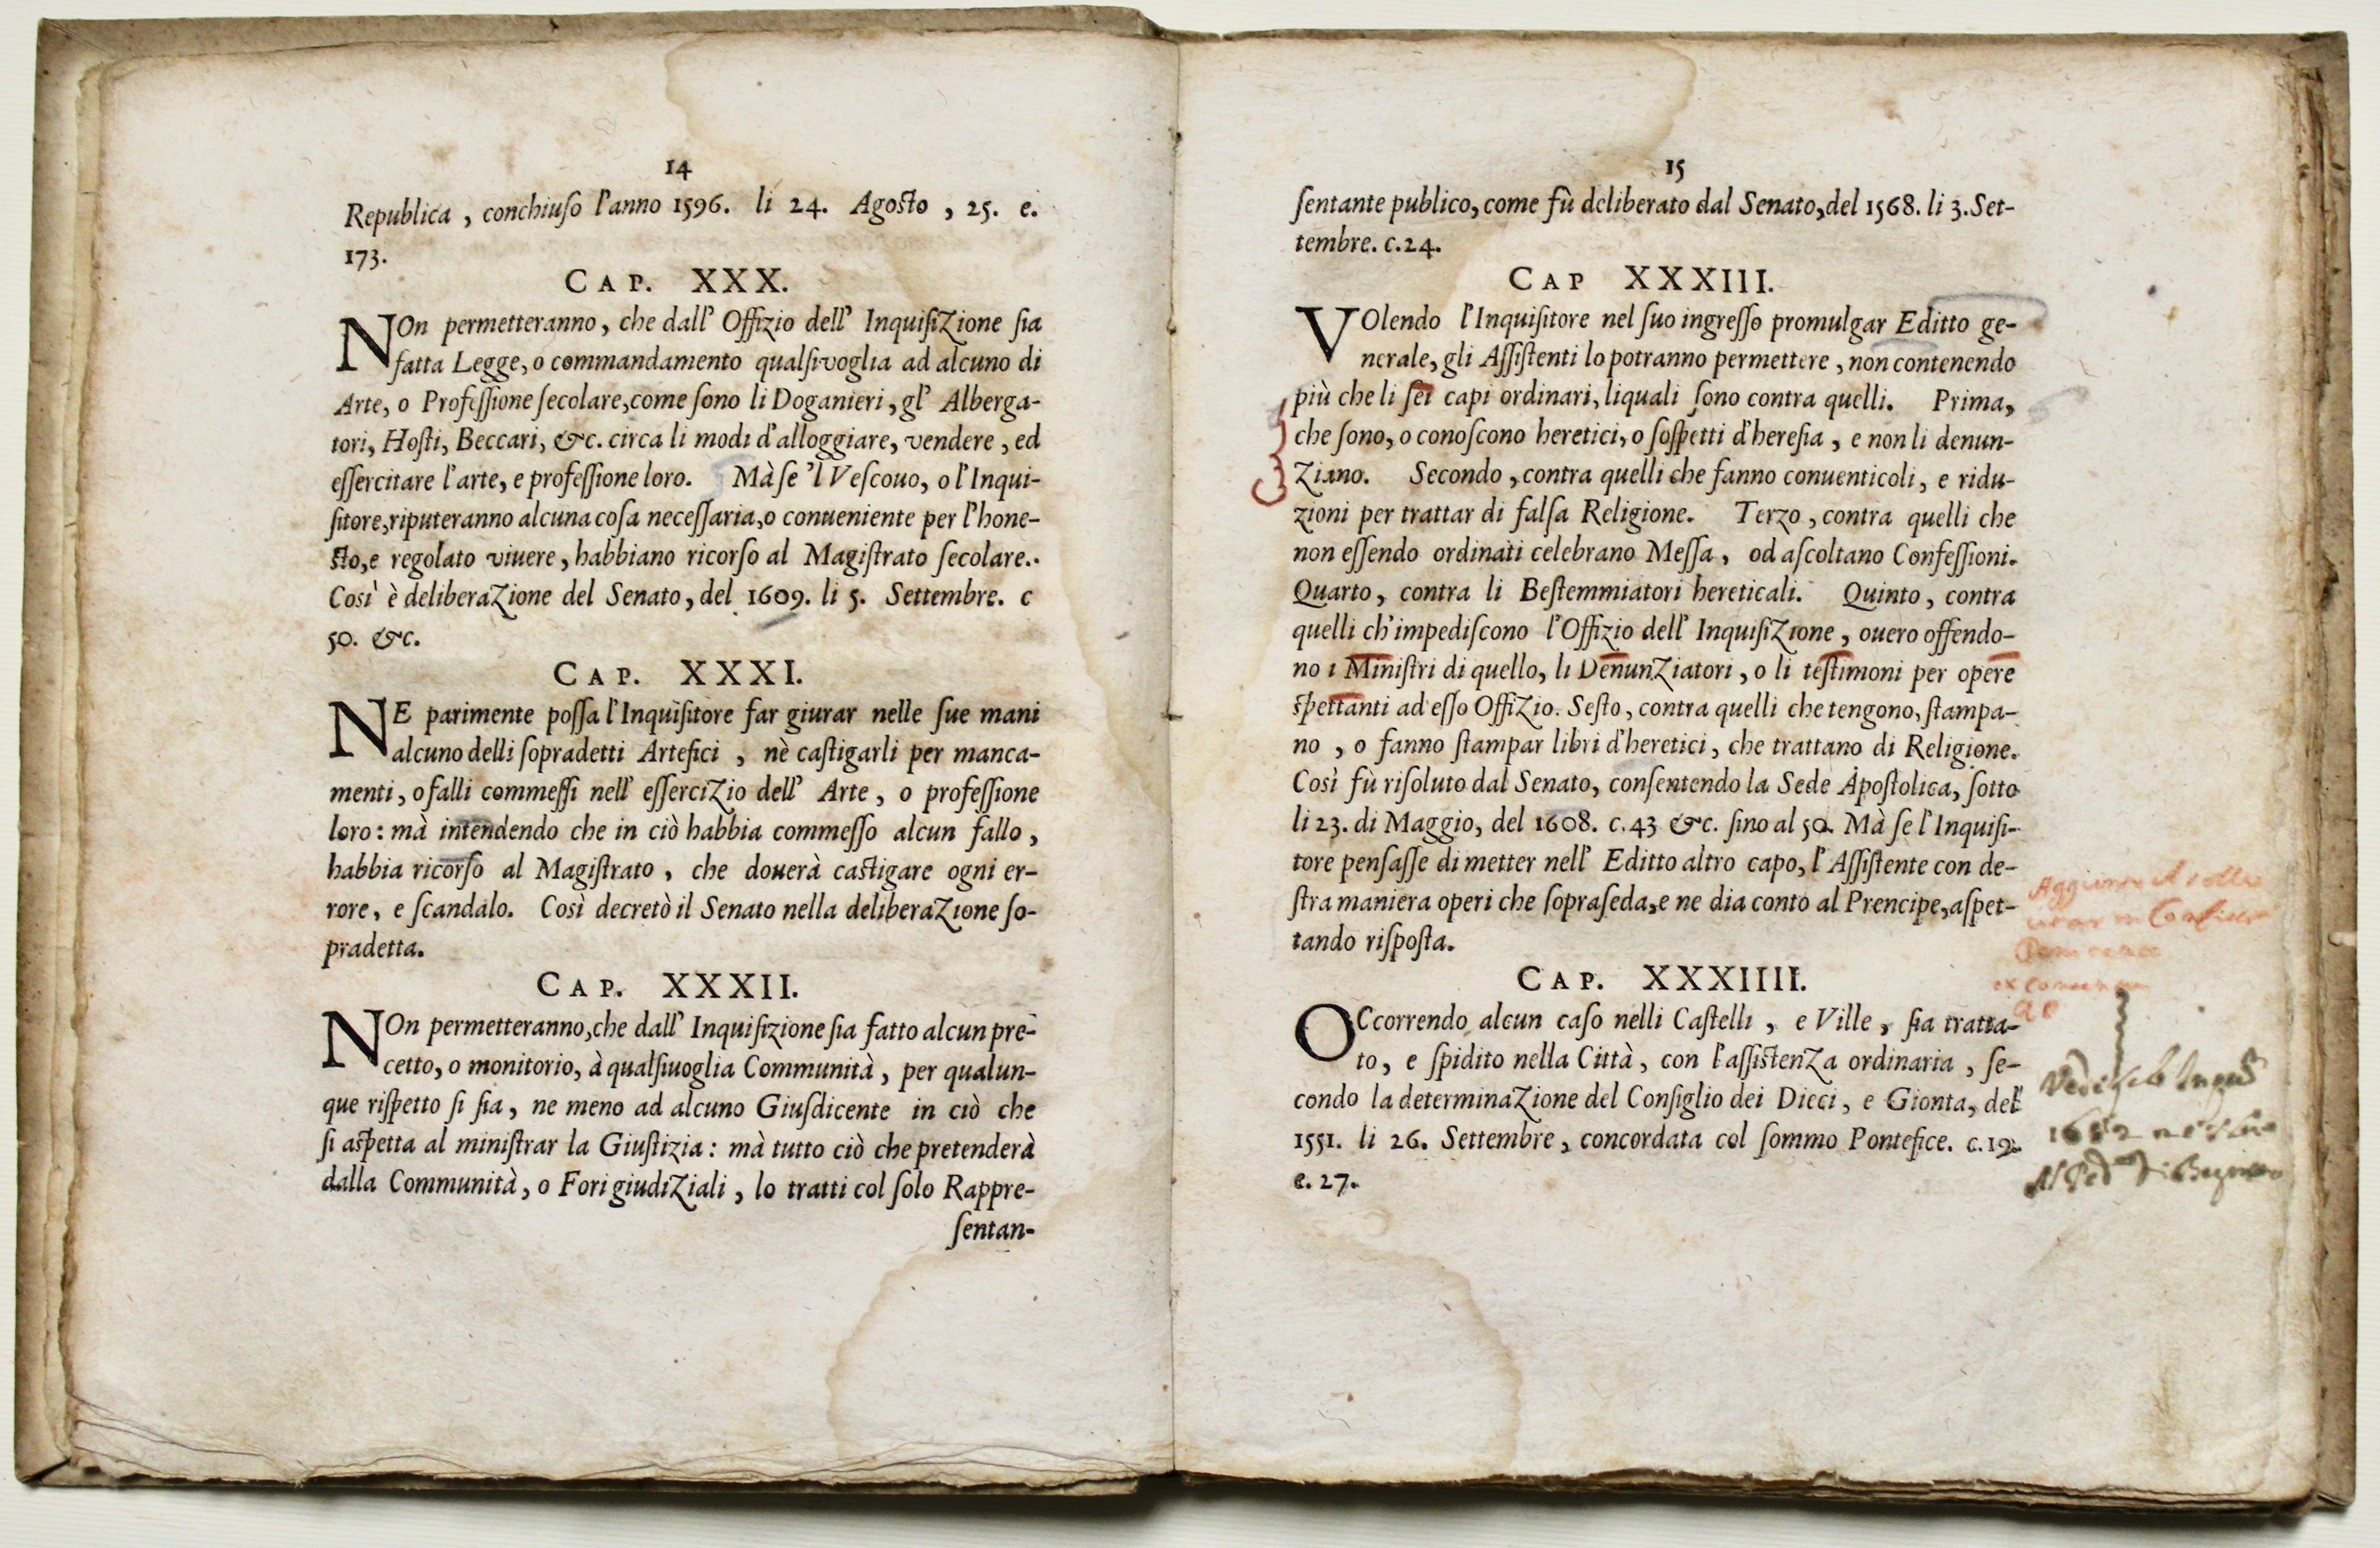 14
Republica , conchiuſo l'anno 1596. li 24. Agoſto , 25. e.
173.
CAP. XXX.
NOn permetteranno, che dall' Offizio dell' Inquiſizione ſia
fatta Legge, o commandamento qualſivoglia ad alcuno di
Arte, o Profeſſione ſecolare, come ſono li Doganieri, gl' Alberga-
tori, Hoſti, Beccari, &c. circa li modi d'alloggiare, vendere , ed
eſſercitare l'arte, e profeſſione loro. Mà ſe 'l Veſcouo, o l'Inqui-
ſitore, riputeranno alcuna coſa neceſſaria, o conueniente per l'hone-
ſto, e regolato viuere, habbiano ricorſo al Magiſtrato ſecolare.
Così è deliberazione del Senato, del 1609. li 5. Settembre. c
50. &c.
CAP. XXXI.
NE parimente poſſa l'Inquiſitore far giurar nelle ſue mani
alcuno delli ſopradetti Artefici , nè caſtigarli per manca-
menti, o falli commeſſi nell' eſſercizio dell' Arte, o profeſſione
loro: mà intendendo che in ciò habbia commeſſo alcun fallo ,
habbia ricorſo al Magiſtrato , che douerà caſtigare ogni er-
rore, e ſcandalo. Così decretò il Senato nella deliberazione ſo-
pradetta.
CAP. XXXII.
NOn permetteranno, che dall' Inquiſizione ſia fatto alcun pre-
cetto, o monitorio, à qualſiuoglia Communità , per qualun-
que riſpetto ſi ſia, ne meno ad alcuno Giuſdicente in ciò che
ſi aſpetta al miniſtrar la Giuſtizia: mà tutto ciò che pretenderà
dalla Communità, o Fori giudiziali , lo tratti col ſolo Rappre-
ſentan-
15
ſentante publico, come fù deliberato dal Senato, del 1568. li 3. Set-
tembre. c.24.
CAP XXXIII.
VOlendo l'Inquiſitore nel ſuo ingreſſo promulgar Editto ge-
nerale, gli Aſſiſtenti lo potranno permettere , non contenendo
più che li ſei capi ordinari, liquali ſono contra quelli. Prima,
che ſono, o conoſcono heretici, o ſoſpetti d'hereſia , e non li denun-
ziano. Secondo , contra quelli che fanno conuenticoli, e ridu-
zioni per trattar di falſa Religione. Terzo , contra quelli che
non eſſendo ordinati celebrano Meſſa, od aſcoltano Confeſſioni.
Quarto, contra li Beſtemmiatori hereticali. Quinto, contra
quelli ch'impediſcono l'Offizio dell' Inquiſizione, ouero offendo-
no i Miniſtri di quello, li Denunziatori, o li teſtimoni per opere
ſpettanti ad eſſo Offizio. Seſto, contra quelli che tengono, ſtampa-
no , o fanno ſtampar libri d'heretici, che trattano di Religione.
Così fù riſoluto dal Senato, conſentendo la Sede Apoſtolica, ſotto
li 23. di Maggio, del 1608. c.43 &c. ſino al 50. Mà ſe l'Inquiſi-
tore penſaſſe di metter nell' Editto altro capo, l'Aſſiſtente con de-
ſtra maniera operi che ſopraſeda, e ne dia conto al Prencipe, aſpet-
tando riſpoſta.
CAP. XXXIIII.
OCcorrendo alcun caſo nelli Caſtelli , e Ville, ſia tratta-
to, e ſpidito nella Città, con l'aſſiſtenza ordinaria , ſe-
condo la determinazione del Conſiglio dei Dieci, e Gionta, del
1551. li 26. Settembre, concordata col ſommo Pontefice. c.19.
e. 27.